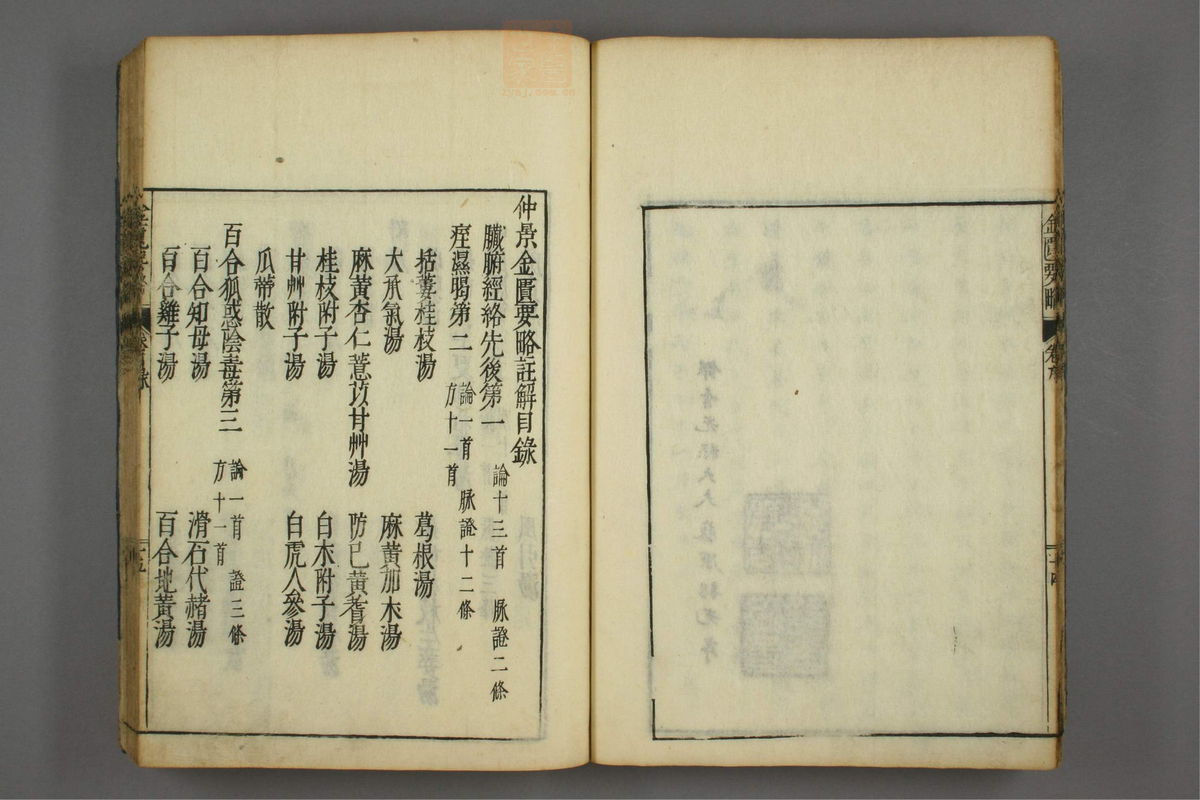 金匱要略
卷序
二十四
仲景金匱要略註解目錄
臟腑經絡先後第一 論十三首 脉證二條
痓濕暍第二 論一首 脉證十二條 方十一首
括蔞桂枝湯 葛根湯
大承氣湯 麻黃加朮湯
麻黃杏仁薏苡甘艸湯 防己黃耆湯
桂枝附子湯 白朮附子湯
甘艸附子湯 白虎人參湯
瓜蒂散
百合狐惑陰毒第三 論一首 證三條 方十一首
百合知母湯 滑石代赭湯
百合雞子湯 百合地黃湯